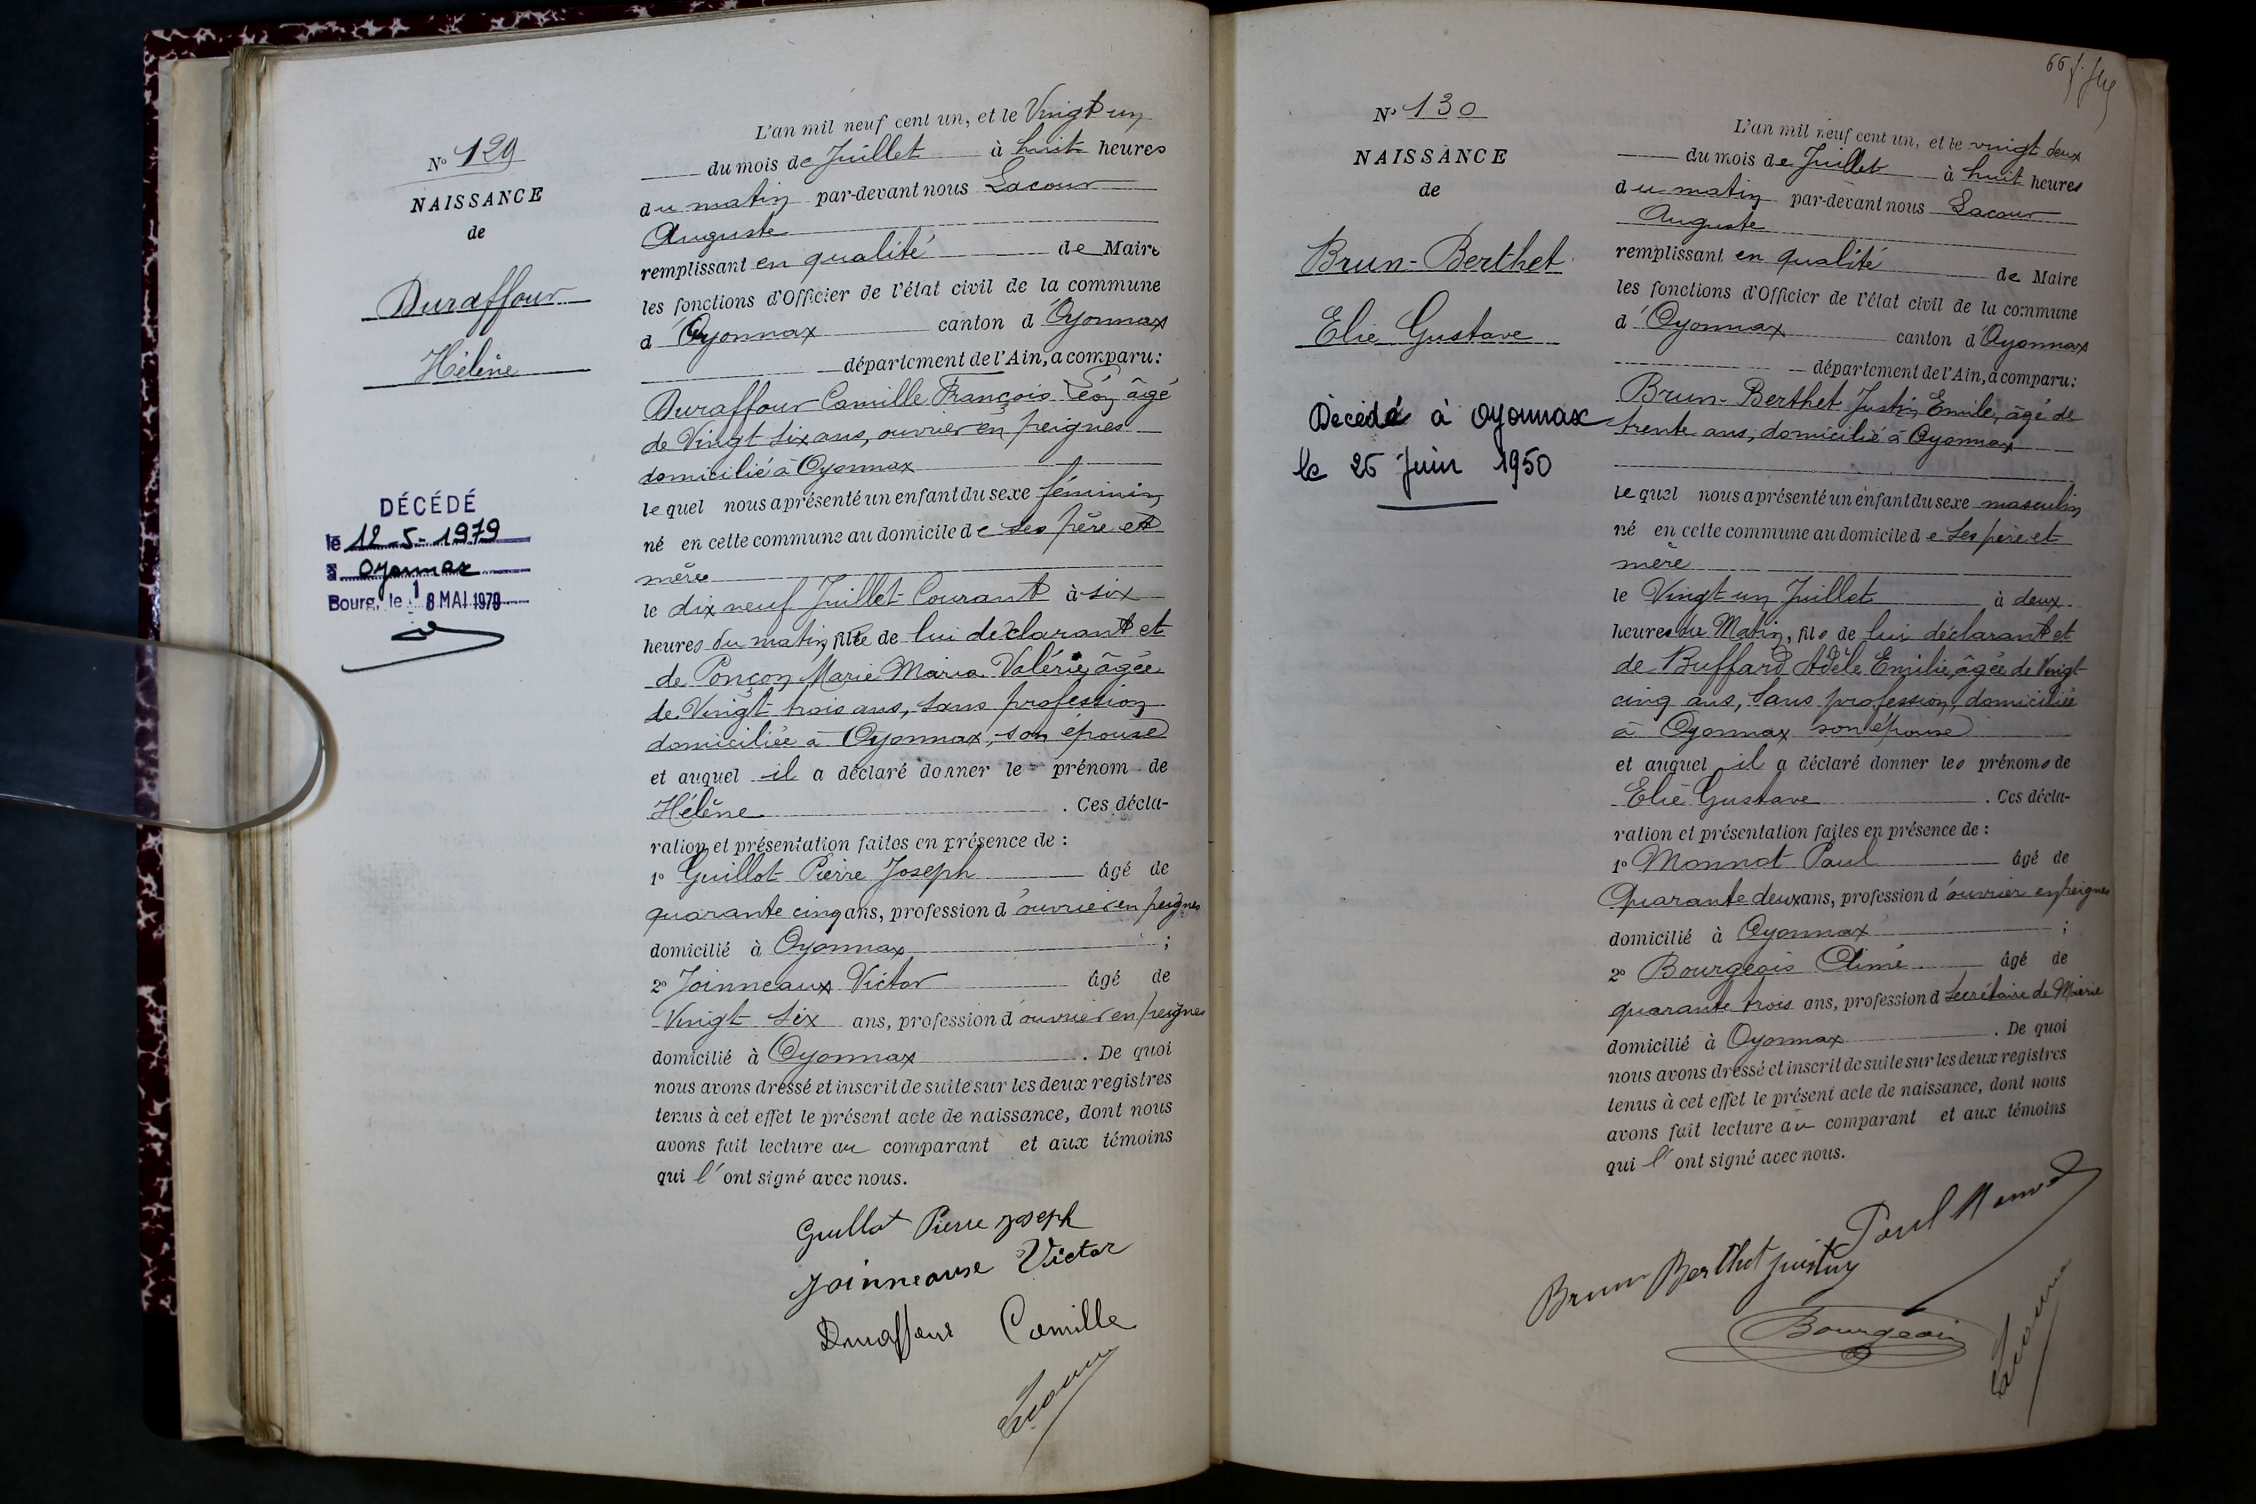 N° 129
NAISSANCE
de
Duraffour
Hélène
DÉCÉDÉ
le 12-5-1979
à Oyonnax
Bourg, le 18 MAI 1979
L'an mil neuf cent un, et le Vingt un
du mois de Juillet à huit heures
du matin par-devant nous Lacour
Auguste
remplissant en qualité de Maire
les fonctions d'Officier de l'état civil de la commune
d'Oyonnax canton d'Oyonnax
département de l'Ain, a comparu:
Duraffour Camille François Léon âgé
de Vingt six ans, ouvrier en peignes
domicilié à Oyonnax
lequel nous a présenté un enfant du sexe féminin
né en cette commune au domicile de ses père et
mère
le dix neuf Juillet Courant à six
heures du matin, fille de lui déclarant et
de Ponçon Marie Maria Valérie, âgée
de Vingt trois ans, sans profession
domiciliée à Oyonnax, son épouse
et auquel il a déclaré donner le prénom de
Hélène. Ces décla-
ration et présentation faites en présence de :
1° Guillot Pierre Joseph âgé de
quarante cinq ans, profession d'ouvrier en peignes
domicilié à Oyonnax ;
2° Joinneaux Victor âgé de
Vingt six ans, profession d'ouvrier en peignes
domicilié à Oyonnax. De quoi
nous avons dressé et inscrit de suite sur les deux registres
tenus à cet effet le présent acte de naissance, dont nous
avons fait lecture au comparant et aux témoins
qui l'ont signé avec nous.
Guillot Pierre Joseph
Joinneaux Victor
Duraffour Camille
Lacour
66
N° 130
NAISSANCE
de
Brun-Berthet
Elie Gustave
Décédé à Oyonnax
le 25 Juin 1950
L'an mil neuf cent un, et le vingt deux
du mois de Juillet à huit heures
du matin par-devant nous Lacour
Auguste
remplissant en qualité de Maire
les fonctions d'Officier de l'état civil de la commune
d'Oyonnax canton d'Oyonnax
département de l'Ain, a comparu:
Brun-Berthet Justin Emile, âgé de
trente ans, domicilié à Oyonnax
lequel nous a présenté un enfant du sexe masculin
né en cette commune au domicile de ses père et
mère
le Vingt un Juillet à deux
heures du Matin, fils de lui déclarant et
de Buffard Adèle Emilie, âgée de Vingt
cinq ans, sans profession, domiciliée
à Oyonnax son épouse
et auquel il a déclaré donner les prénoms de
Elie Gustave. Ces décla-
ration et présentation faites en présence de :
1° Monnot Paul âgé de
Quarante deux ans, profession d'ouvrier en peignes
domicilié à Oyonnax ;
2° Bourgeois Aimé âgé de
quarante trois ans, profession d secrétaire de Mairie
domicilié à Oyonnax. De quoi
nous avons dressé et inscrit de suite sur les deux registres
tenus à cet effet le présent acte de naissance, dont nous
avons fait lecture au comparant et aux témoins
qui l'ont signé avec nous.
Paul Monnot
Brun Berthet Justin
Bourgeois
Lacour